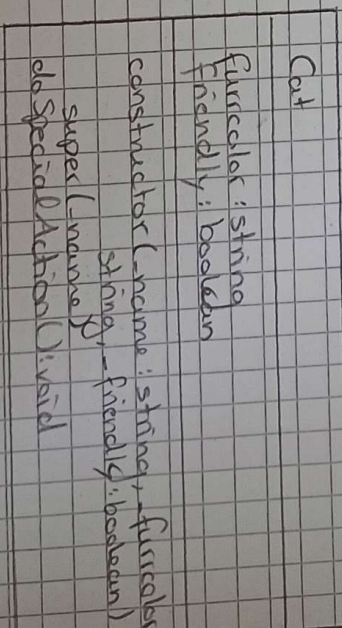 Cat
furrcolor : string
friendly : boolean
constructor (_name : string, _furrcolor
string, _friendly : boolean)
super (_name)
doSpecialAction() : void